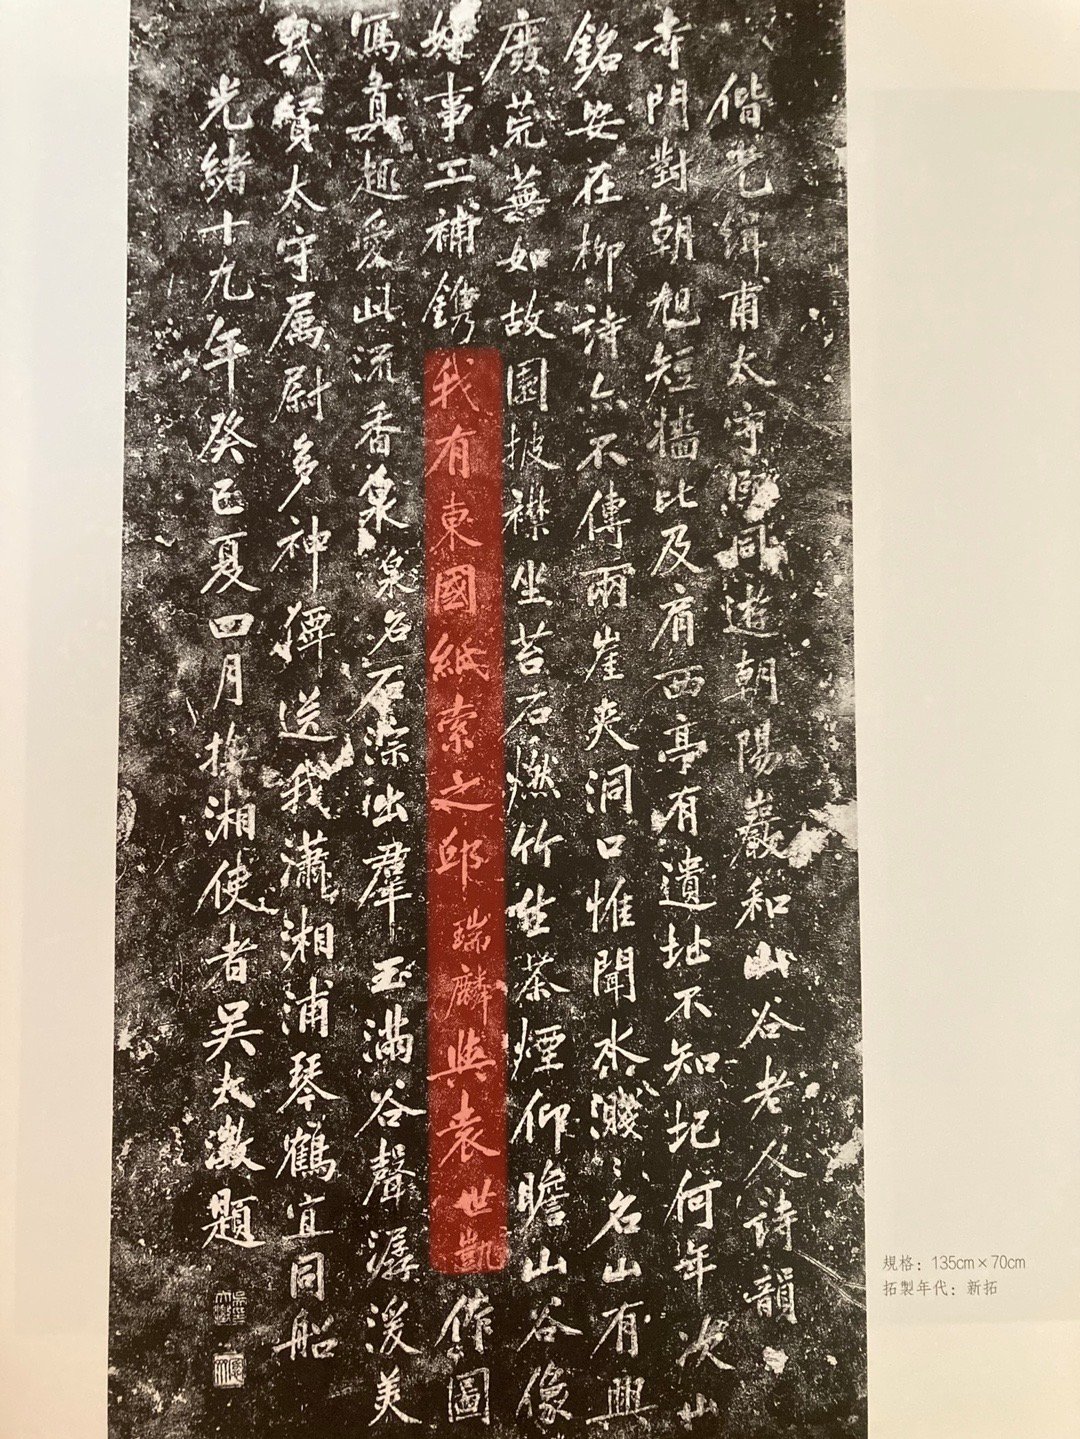 偕光緝甫太守熙同遊朝陽巖和山谷老人詩韻
寺門對朝旭短牆比及肩西亭有遺址不知圮何年次山
銘安在柳詩亦不傳兩崖夾洞口惟聞水濺〻名山有興
廢荒蕪如故園披襟坐苔石燃竹生茶煙仰瞻山谷像
好事工補鐫我有東國紙索之邱瑞麟與袁世凱作圖
寫真趣愛此流香泉泉名石淙出羣玉滿谷聲潺湲美
哉賢太守厲尉多神獰送我瀟湘浦琴鶴宜同船
光緒十九年癸巳夏四月撫湘使者吳大澂題
規格：135cm×70cm
拓製年代：新拓